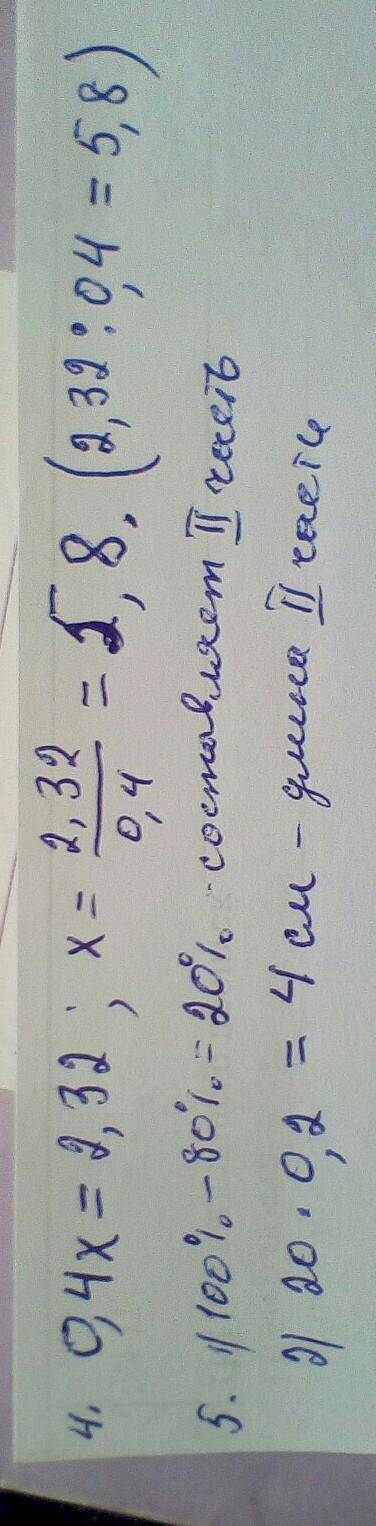 4. 0,4x = 2,32 ; x = 2,32/0,4 = 5,8. (2,32 : 0,4 = 5,8)
5. 1) 100% - 80% = 20% - составляет II часть
2) 20 · 0,2 = 4 см - длина II части